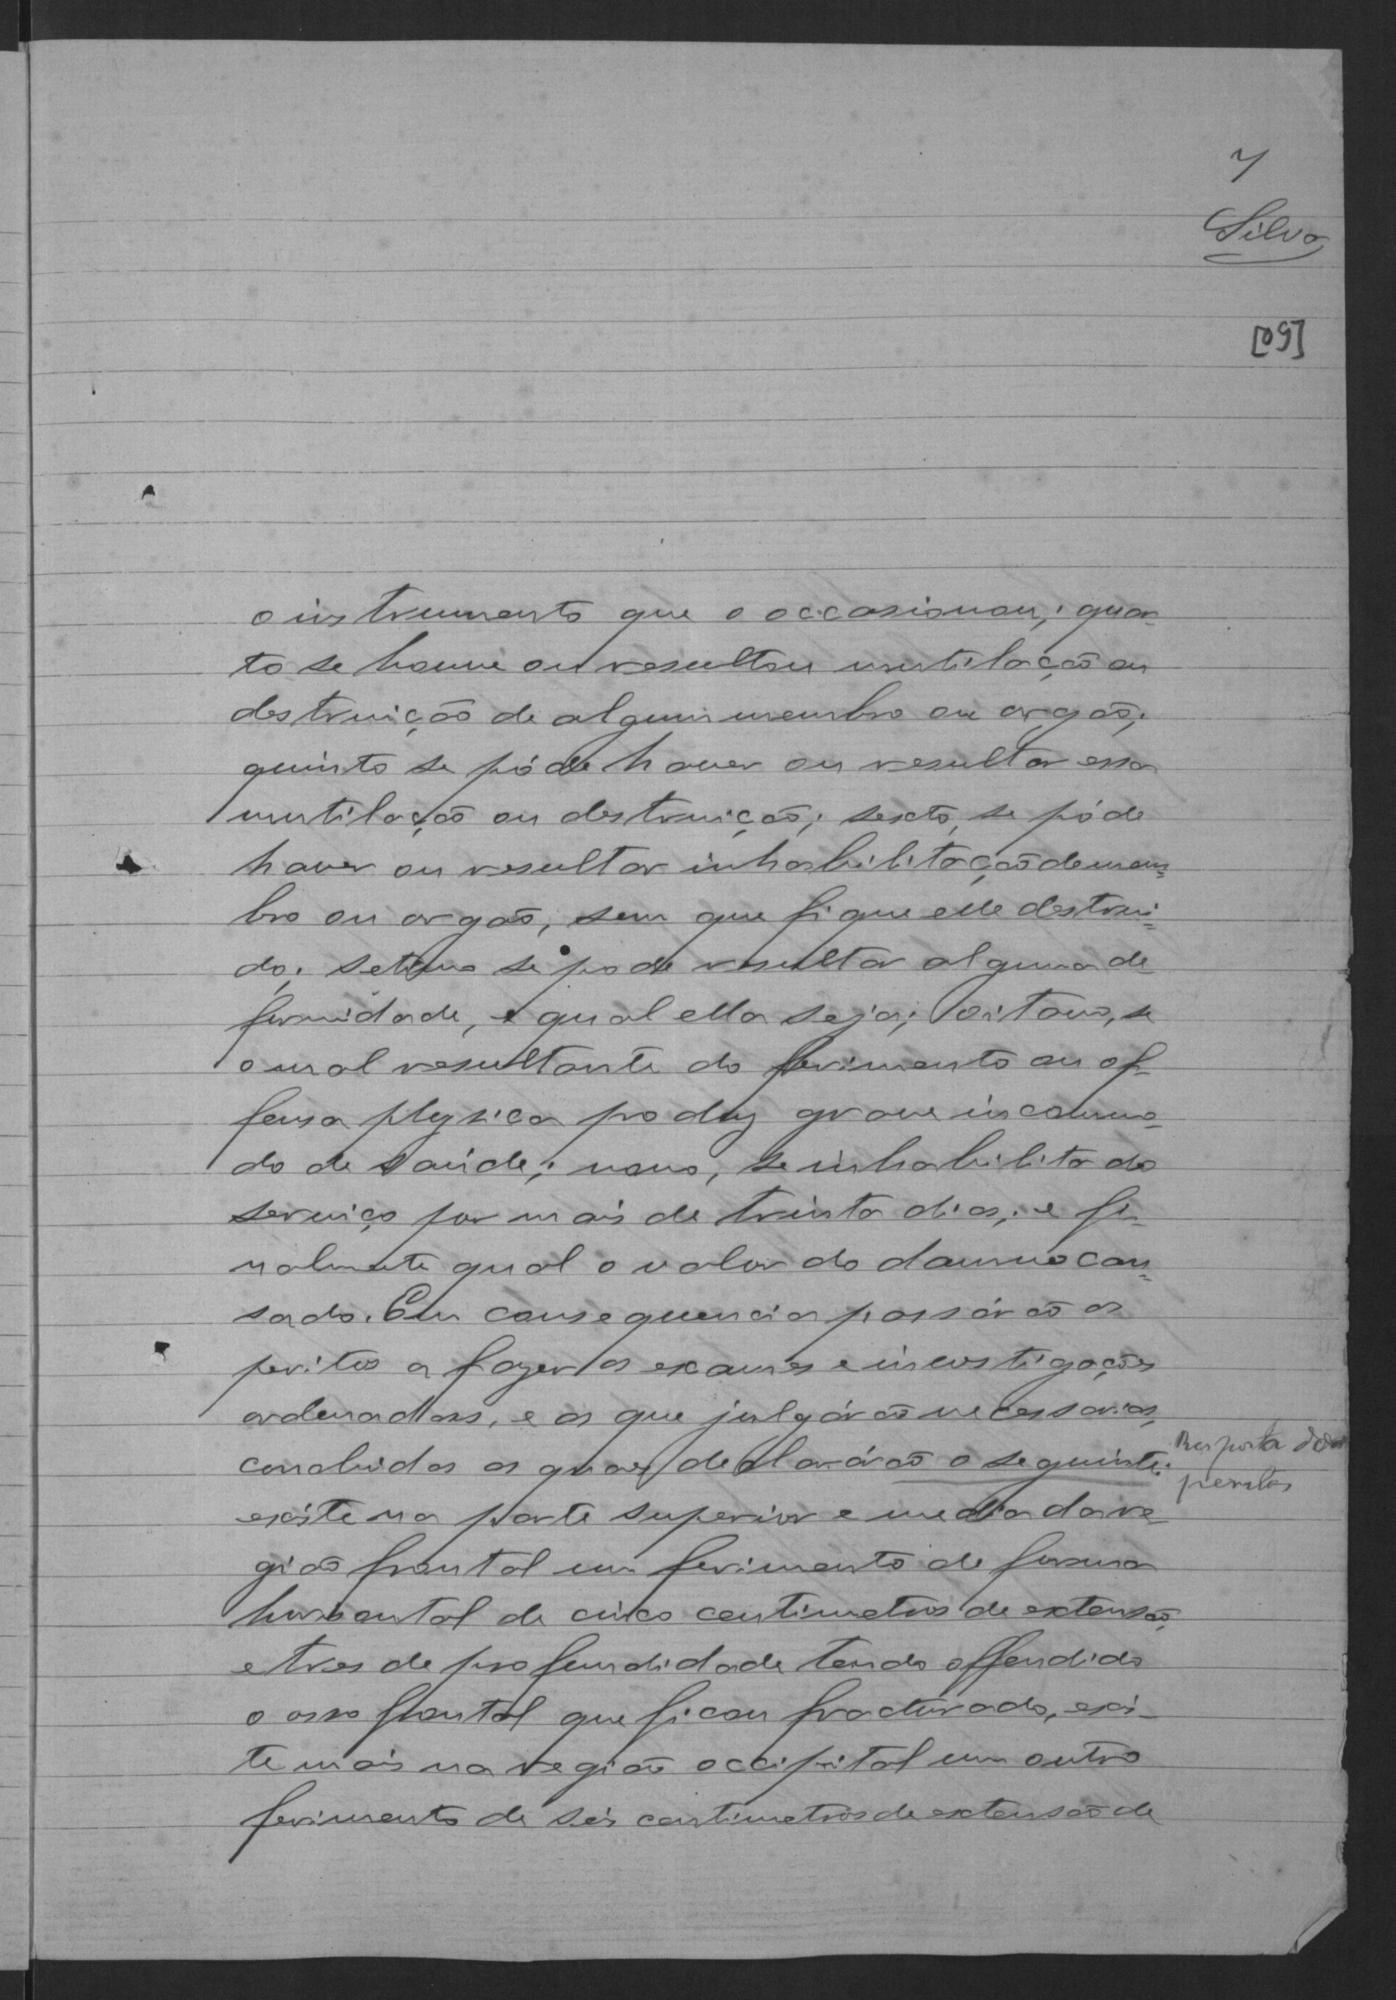 7
Silva
[09]
o instrumento que o occasionou; quar-
to se houve ou resultou mutilação ou
destruição de algum membro ou orgão;
quinto se póde haver ou resultar essa
mutilação ou destruição; sexto, se póde
haver ou resultar inhabilitação de mem=
bro ou orgão, sem que fique elle destrui=
do; setimo se pode resultar alguma de-
formidade, e qual ella seja; oitavo, se
o mal resultante do ferimento ou of-
fensa physica produz grave incommo-
do de saúde; nono, se inhabilita do
serviço por mais de trinta dias; e fi-
nalmente qual o valor do damno cau=
sado. Em consequencia passárão os
peritos a fazer os exames e investigações
ordenadas, e as que julgárão necessarias,
concluidas as quaes declarárão o seguinte:
Resposta dos
peritos
existe na parte superior e media da re-
gião frontal um ferimento de forma
horisontal de cinco centimetros de extensão,
e tres de profundidade tendo offendido
o osso frontal que ficou fracturado, exis-
te mais na região occipital um outro
ferimento de seis centimetros de extensão de